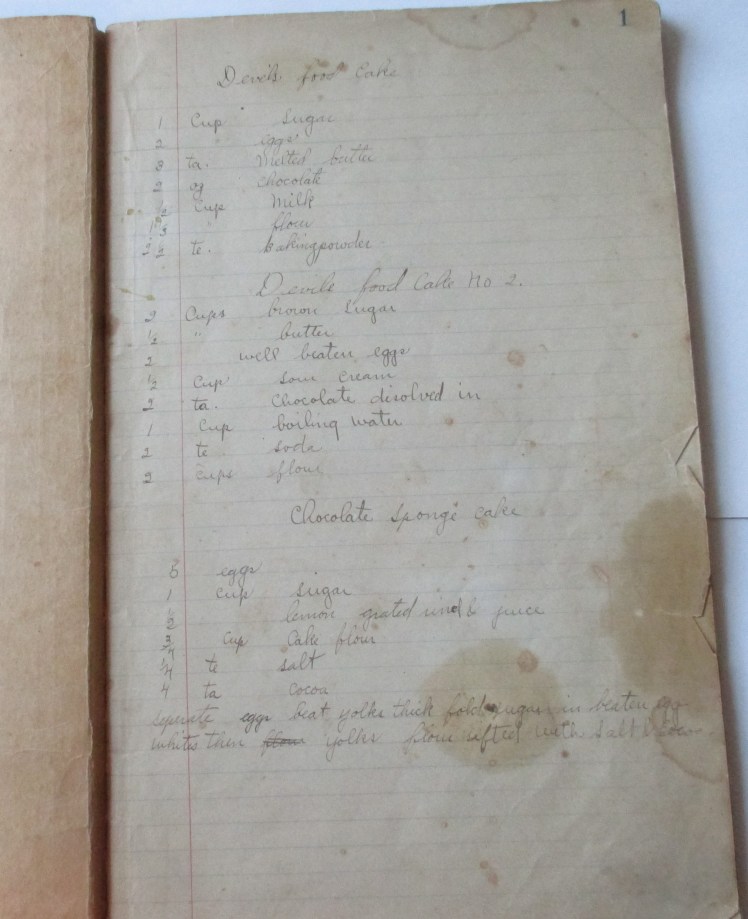 1
Devils food Cake
1 Cup Sugar
2 eggs
3 ta. Melted butter
2 oz chocolate
1/2 Cup Milk
1 1/3 " flour
2 1/2 te. bakingpowder
Devils food Cake No 2.
2 Cups brown Sugar
1/2 " butter
2 well beaten eggs
1/2 Cup sour cream
2 ta. Chocolate disolved in
1 Cup boiling water
2 te soda
2 Cups flour
Chocolate Sponge Cake
eggs
1 cup sugar
1/2 lemon grated rind & juice
3/4 Cup Cake flour
1/4 te salt
4 ta cocoa
seperate eggs beat yolks thick fold sugar in beaten egg
whites then flour yolks flour sifted with Salt & Cocoa